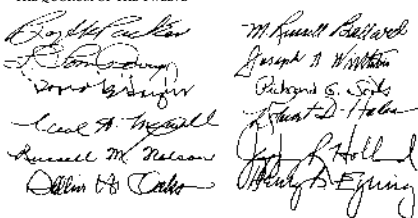 THE QUORUM OF THE TWELVE
Boyd K Packer
L. Tom Perry
David B. Haight
Neal A. Maxwell
Russell M. Nelson
Dallin H. Oaks
M. Russell Ballard
Joseph B Wirthlin
Richard G. Scott
Robert D. Hales
Jeffrey R Holland
Henry B Eyring